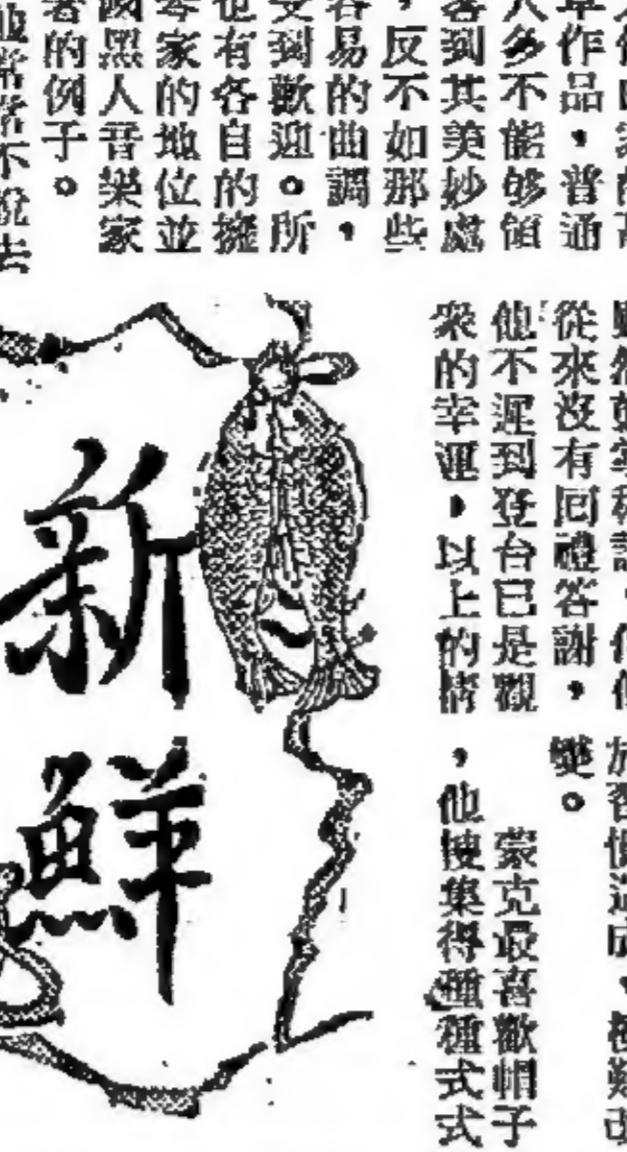 作品，普通
人多不能够領
到其美妙處
，反不如那些
容易的曲調，
受到歡迎。所
也有各自的擁
琴家的地位並
國黑人音樂家
著的例子。
常常不說去
從來沒有回禮答謝，
他不遲到登台已是觀
衆的幸運，以上的情
變。
蒙克最喜歡帽子
，他搜集得種種式式
新鮮